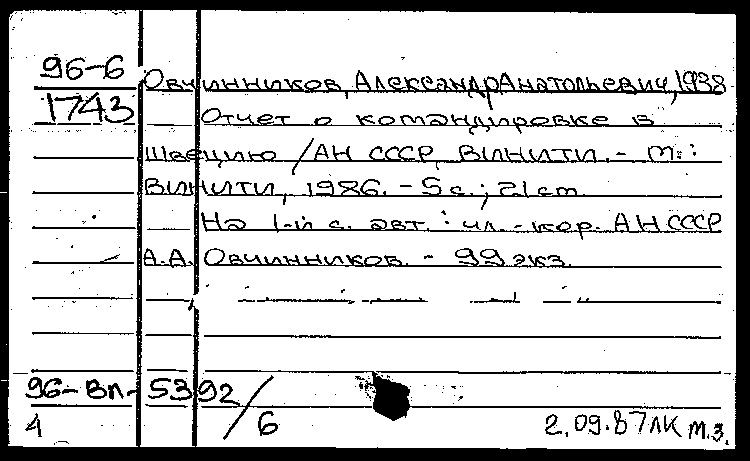 96-6
1743
Овчинников, Александр Анатольевич, 1938
Отчет о командировке в
Швецию / АН СССР, ВИНИТИ. - М. :
ВИНИТИ, 1986. - 5 с. ; 21 cm
На 1-й с. авт. : чл. - кор. АН СССР
А.А. Овчинников. - 99 экз.
96-Вл-5392/6
4
2.09.87 ЛК м.з.